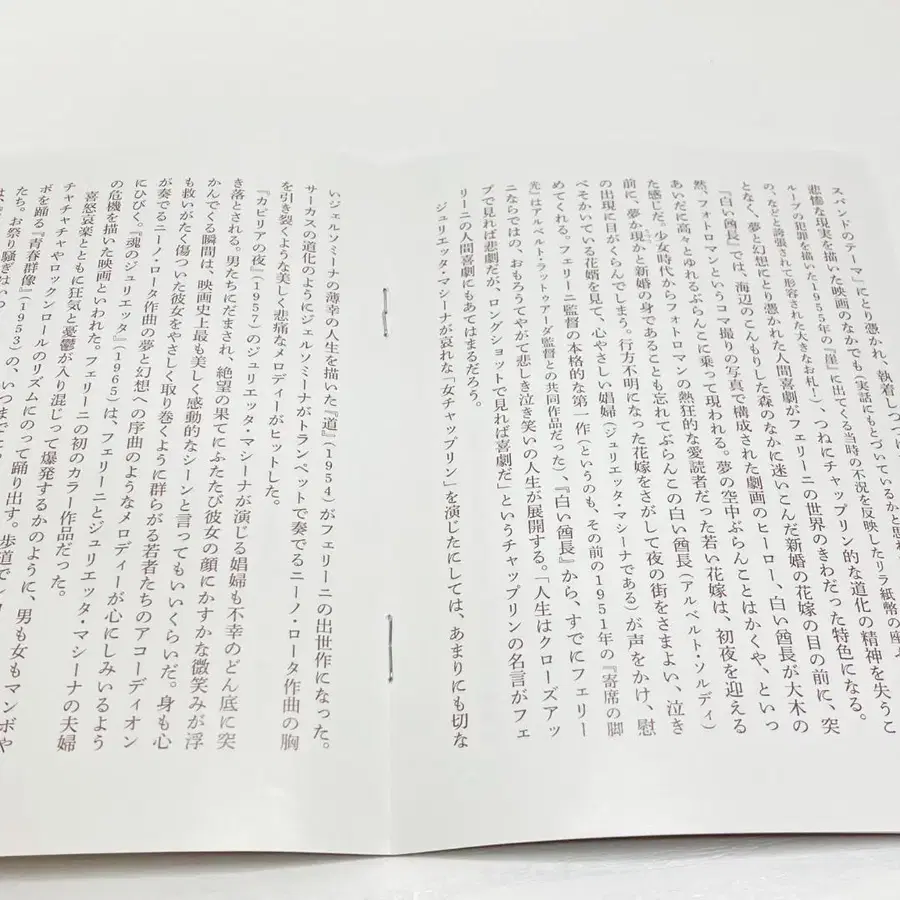 スパンドのテーマ」にとり憑かれ、執着しつづ
悲惨な現実を描いた映画のなかでも(実話にもとづいているかと思うと
ループの犯罪を描いた1955年の『崖』に出てくる当時の不況を反映したリラ紙幣の座や
の、などと誇張されて形容された大きなお札!)、つねにチャップリン的な道化の精神を失うこ
となく、夢と幻想にとり憑かれた人間喜劇がフェリーニの世界のきわだった特色になる。
『白い酋長』では、海辺のこんもりした森のなかに迷いこんだ新婚の花嫁の目の前に、突
然、フォトロマンというコマ撮りの写真で構成された劇画のヒーロー、白い酋長が大木の
あいだに高々とゆれるぶらんこに乗って現われる。夢の空中ぶらんことはかくや、といっ
た感じだ。少女時代からフォトロマンの熱狂的な愛読者だった若い花嫁は、初夜を迎える
前に、夢か現かと新婚の身であることも忘れてぶらんこの白い酋長(アルベルト・ソルディ)
の出現に目がくらんでしまう。行方不明になった花嫁をさがして夜の街をさまよい、泣き
べそかいている花婿を見て、心やさしい娼婦(ジュリエッタ・マシーナである)が声をかけ、慰
めてくれる。フェリーニ監督の本格的な第一作(というのも、その前の1951年の『寄席の脚
光』はアルベルト・ラットゥアーダ監督との共同作品だった)、『白い酋長』から、すでにフェリー
ニならではの、おもろうてやがて悲しき泣き笑いの人生が展開する。「人生はクローズアッ
プで見れば悲劇だが、ロングショットで見れば喜劇だ」というチャップリンの名言がフェ
リーニの人間喜劇にもあてはまるだろう。
ジュリエッタ・マシーナが哀れな「女チャップリン」を演じたにしては、あまりにも切な
いジェルソミーナの薄幸の人生を描いた『道』(1954)がフェリーニの出世作になった。
サーカスの道化のようにジェルソミーナがトランペットで奏でるニーノ・ロータ作曲の胸
を引き裂くような美しく悲痛なメロディーがヒットした。
『カビリアの夜』(1957)のジュリエッタ・マシーナが演じる娼婦も不幸のどん底に突
き落とされる。男たちにだまされ、絶望の果てにふたたび彼女の顔にかすかな微笑みが浮
かんでくる瞬間は、映画史上最も美しく感動的なシーンと言ってもいいくらいだ。身も心
も救いがたく傷ついた彼女をやさしく取り巻くように群らがる若者たちのアコーディオン
が奏でるニーノ・ロータ作曲の夢と幻想への序曲のようなメロディーが心にしみいるよう
にひびく。『魂のジュリエッタ』(1965)は、フェリーニとジュリエッタ・マシーナの夫婦
の危機を描いた映画といわれた。フェリーニの初のカラー作品だった。
喜怒哀楽とともに狂気と憂鬱が入り混じって爆発するかのように、男も女もマンボや
チャチャチャやロックンロールのリズムにのって踊り出す。歩道で
ボを踊る『青春群像』(1953)の、いつまでに
たち。お祭り騒ぎはいつ